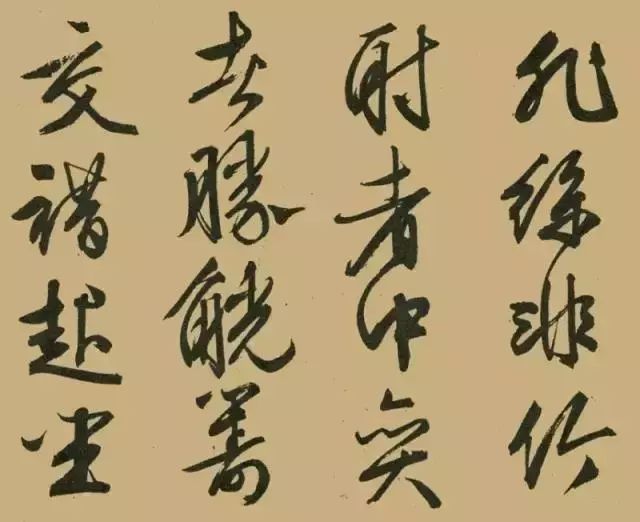 非絲非竹
射者中奕
者勝觥籌
交錯起坐